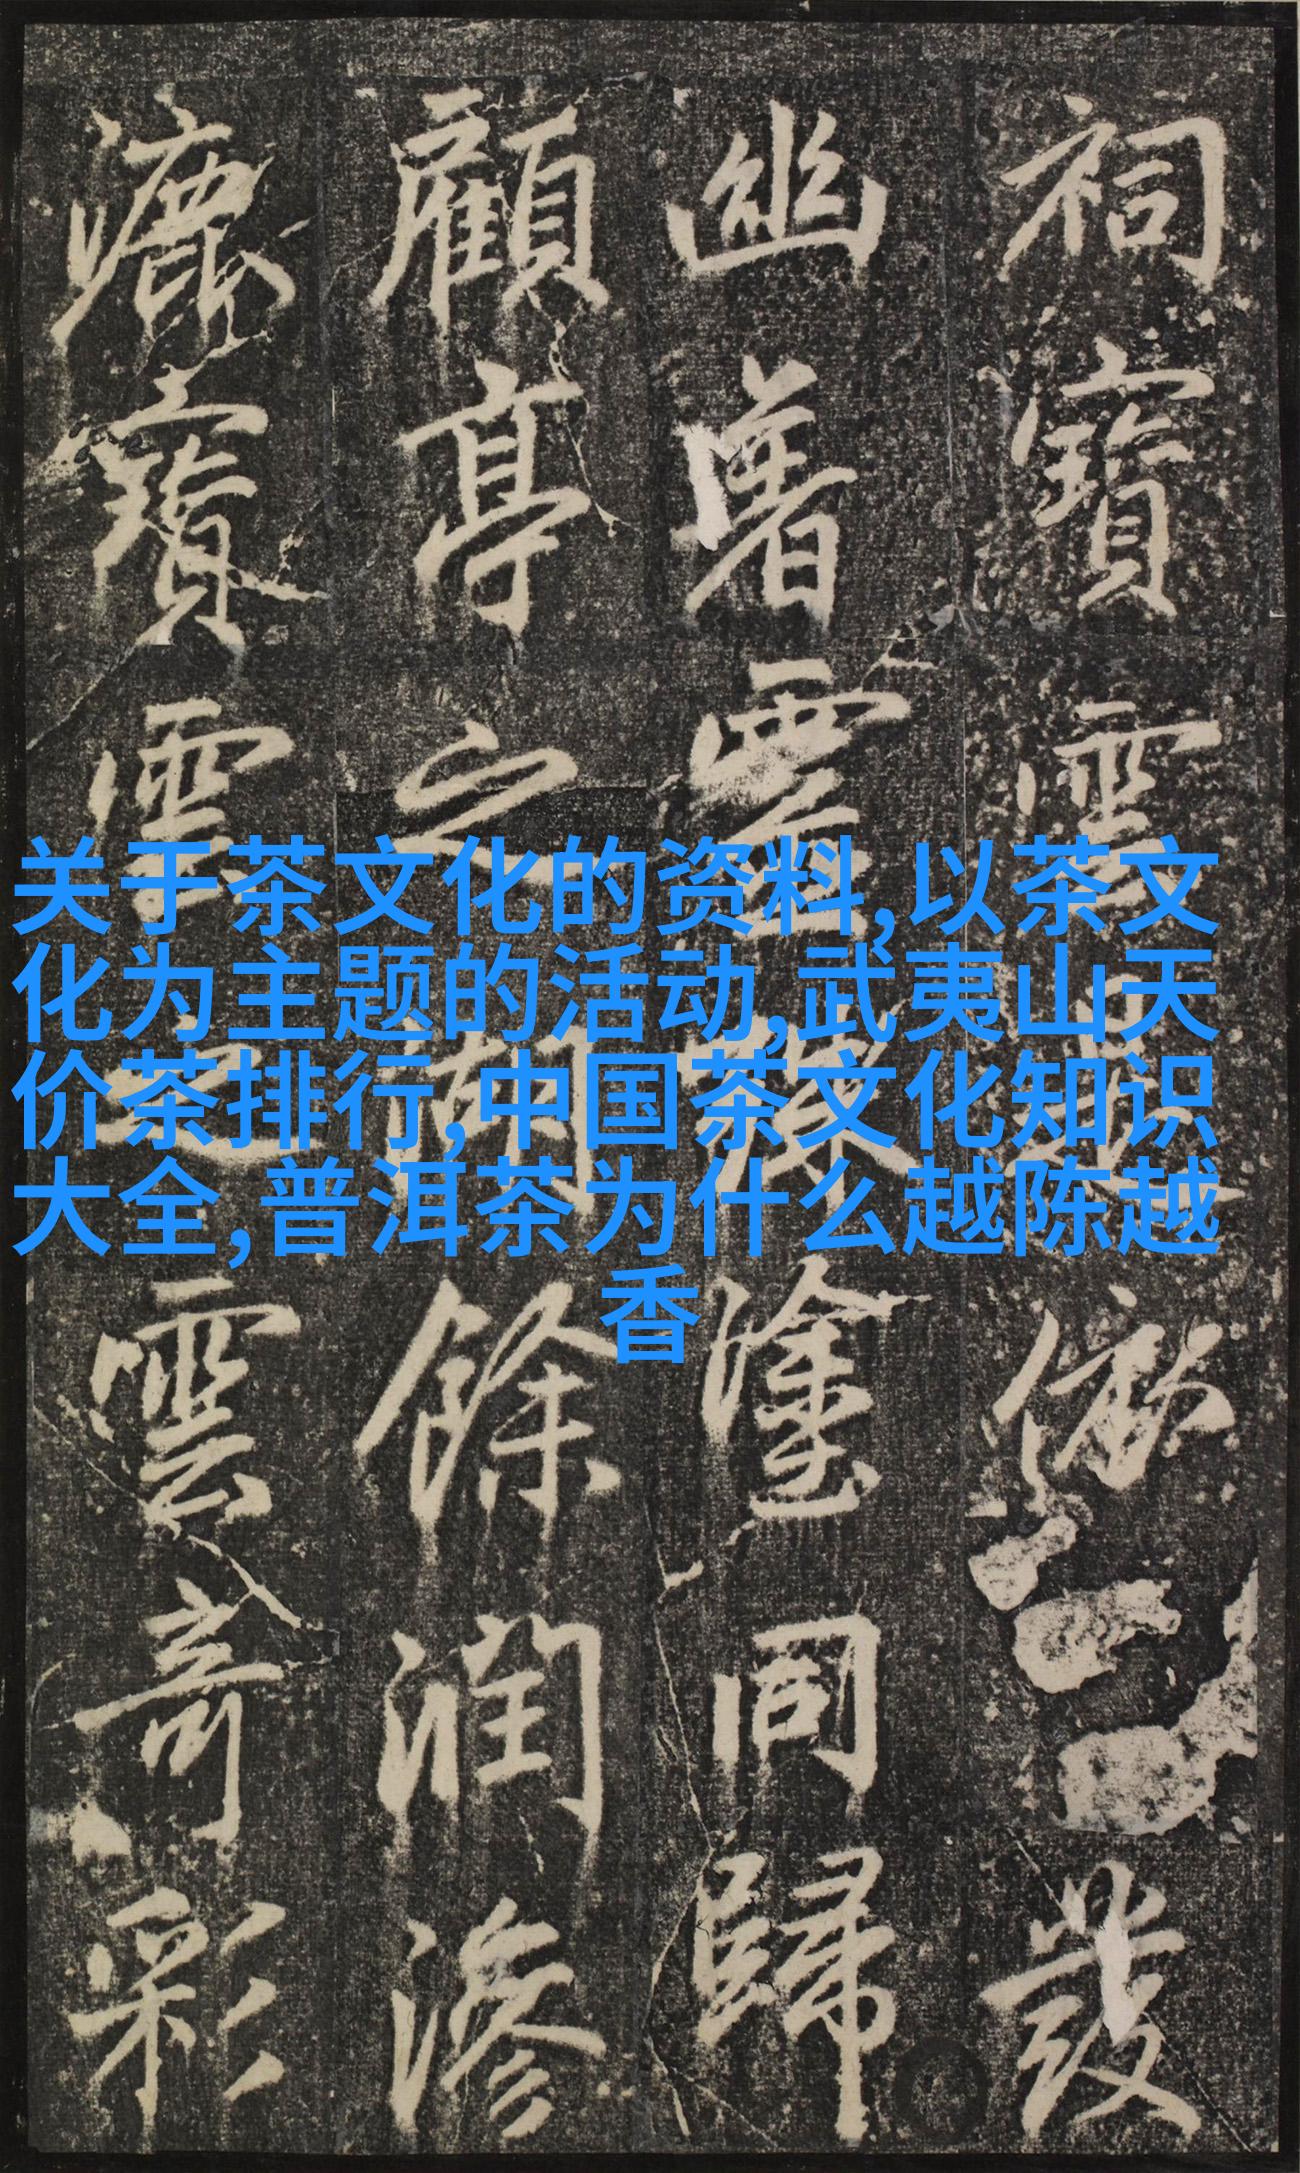 关于茶文化的资料,以茶文
化为主题的活动,武夷山天
价茶排行,中国茶文化知识
大全,普洱茶为什么越陈越
香
祠寶雲發
幽靈殊塗同歸
顧亭之湖餘潤滲
漉寶雲之雲奇彩